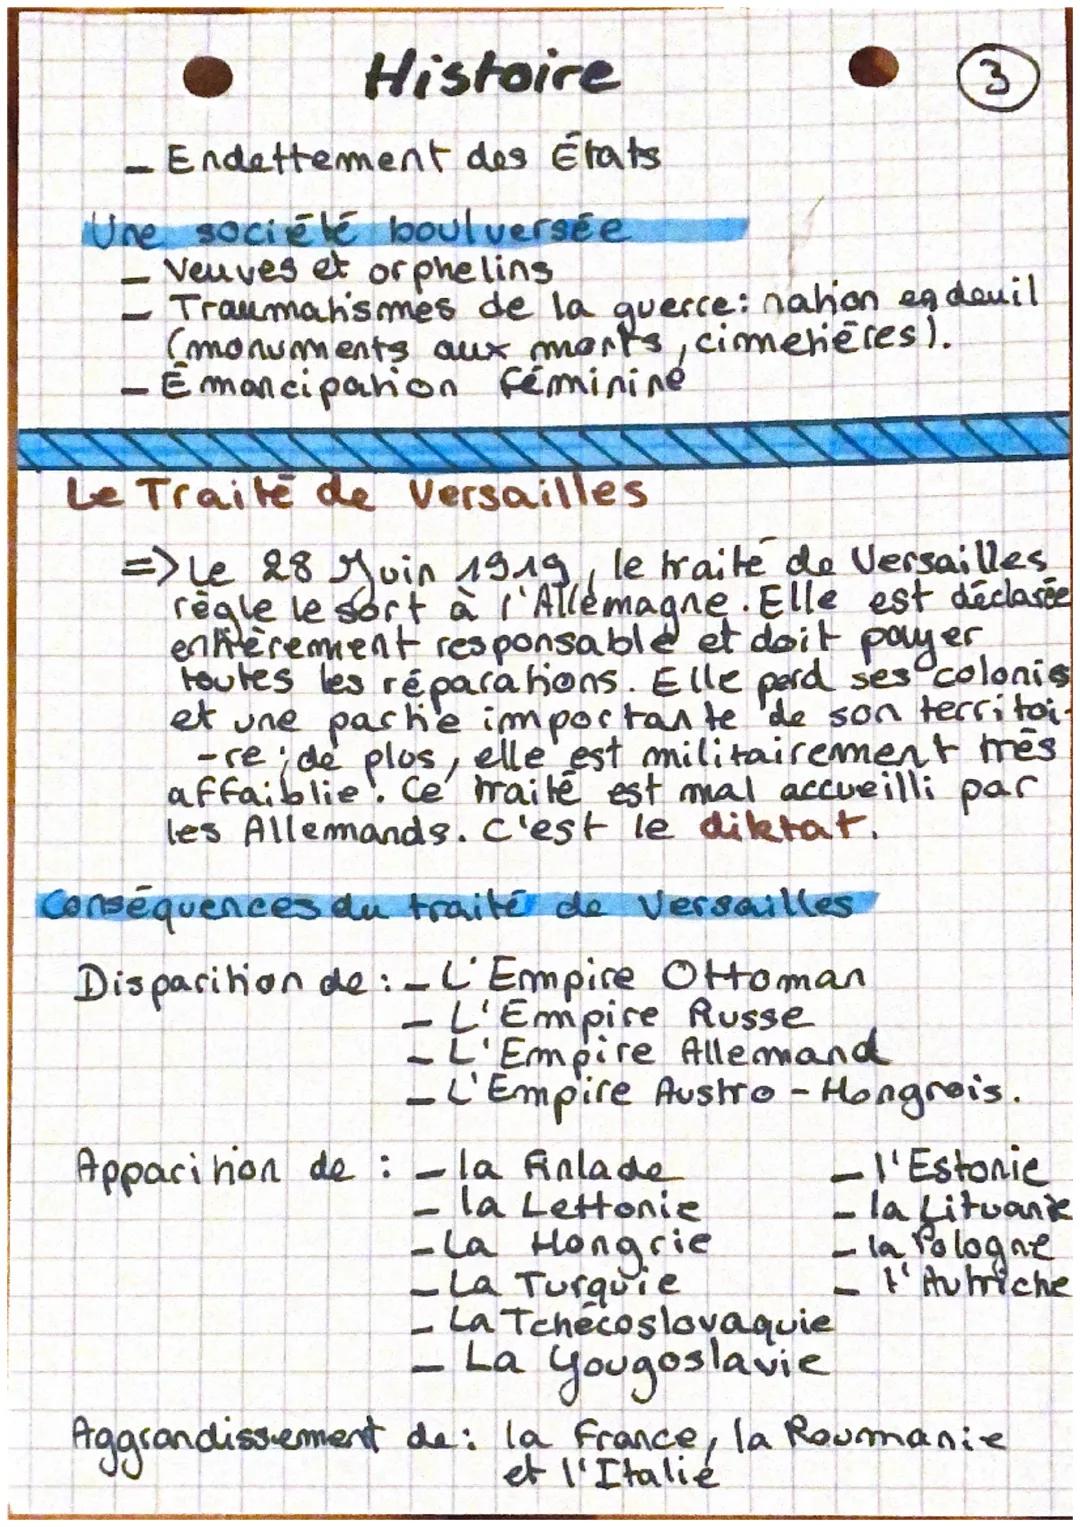 Histoire
3
- Endettement des États
Une société boulversée
- Veuves et orphelins
- Traumatismes de la guerre: nation en deuil
(monuments aux morts, cimetières).
- Émancipation féminine
Le Traité de Versailles
=> Le 28 Juin 1919, le traité de Versailles
règle le sort à l'Allemagne. Elle est déclarée
entièrement responsable et doit payer
toutes les réparations. Elle perd ses colonis
et une partie importante de son territoi-
-re ; de plus, elle est militairement très
affaiblie. Ce traité est mal accueilli par
les Allemands. C'est le diktat.
Conséquences du traité de Versailles
Disparition de : - L'Empire Ottoman
- L'Empire Russe
- L'Empire Allemand
- L'Empire Austro-Hongrois.
Apparition de : - la Finlade - l'Estonie
- la Lettonie - la Lituanie
- La Hongrie - la Pologne
- La Turquie - l'Autriche
- La Tchécoslovaquie
- La Yougoslavie
Aggrandissement de : la France, la Roumanie
et l'Italie